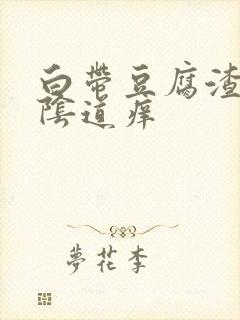 白帶豆腐渣
陰道痒
夢花李